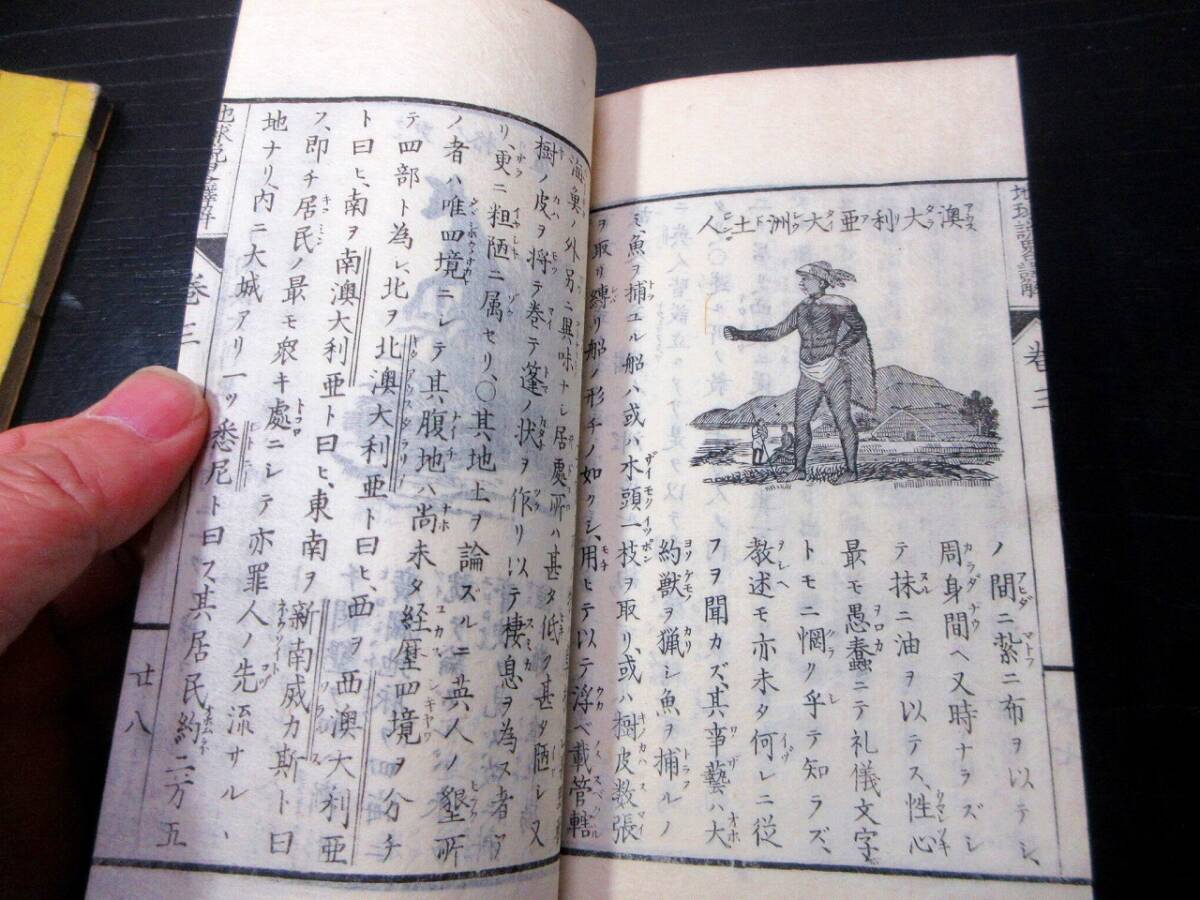 地球説略譯解
卷三
澳大利亞大洲土人
ノ間ニ紮ニ布ヲ以テシ、
周身間ヘ又時ナラズシ
テ抹ニ油ヲ以テス、性心
最モ愚蠢ニテ礼儀文字
トモニ惘乎テ知ラズ、
教述モ亦未タ何レニ従
フヲ聞カズ、其事藝ハ大
約獣ヲ猟シ魚ヲ捕ルノ
ミ、魚ヲ捕ユル船ハ或ハ木頭一枝ヲ取リ、或ハ樹皮数張
ヲ取リ縛リ船ノ形チノ如クシ、用ヒテ以テ浮ベ載管轄
海魚ノ外另ニ興味ナシ居處所ハ甚タ低ク甚タ陋シ又
樹ノ皮ヲ将テ巻テ篷ノ状ヲ作リ以テ棲息ヲ為ス者ア
リ、更ニ粗陋ニ属セリ、〇其地上ヲ論スルニ英人ノ墾所
ノ者ハ唯四境ニシテ其腹地ハ尚未タ経歴四境ヲ分チ
テ四部ト為シ、北ヲ北澳大利亜ト曰ヒ、西ヲ西澳大利亜
ト曰ヒ、南ヲ南澳大利亜ト曰ヒ、東南ヲ新南威カ斯ト曰
ス、即チ居民ノ最モ衆キ處ニシテ亦罪人ノ先流サル、
地ナリ、内ニ大城アリ一ッ悉尼ト曰ス其居民約二万五
地球説略譯解
卷三
廿八